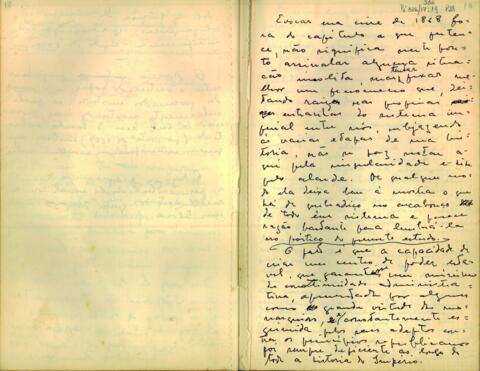 Evocar uma crise de 1868 fo-
ra do capítulo a que perten-
ce, não significa neste pon-
to assinalar alguma situa-
ção insolita, mas tentar fixar me-
lhor um fenomeno que, dei-
tando raizes nas proprias
entranhas do sistema im-
perial entre nós,
as varias etapas de sua his-
toria, não se faz notar a-
qui pela singularidade e sim
pelo alarde. De qualquer mo-
do ela deixa bem à mostra o que
há de quebradiço no arcabouço
de todo êsse sistema e
razão bastante para lembrá-la
no pórtico do presente estudo.
O fato é que a capacidade de
criar um centro de poder está-
vel, que garantisse um minimo
de continuidade administra-
tiva, apresentada por alguns
como grande virtude das mo-
narquias, e constantemente es-
grimida pelos seus adeptos con-
tra os principios republicanos
foi sempre deficiente ao longo de
toda a historia do Imperio.